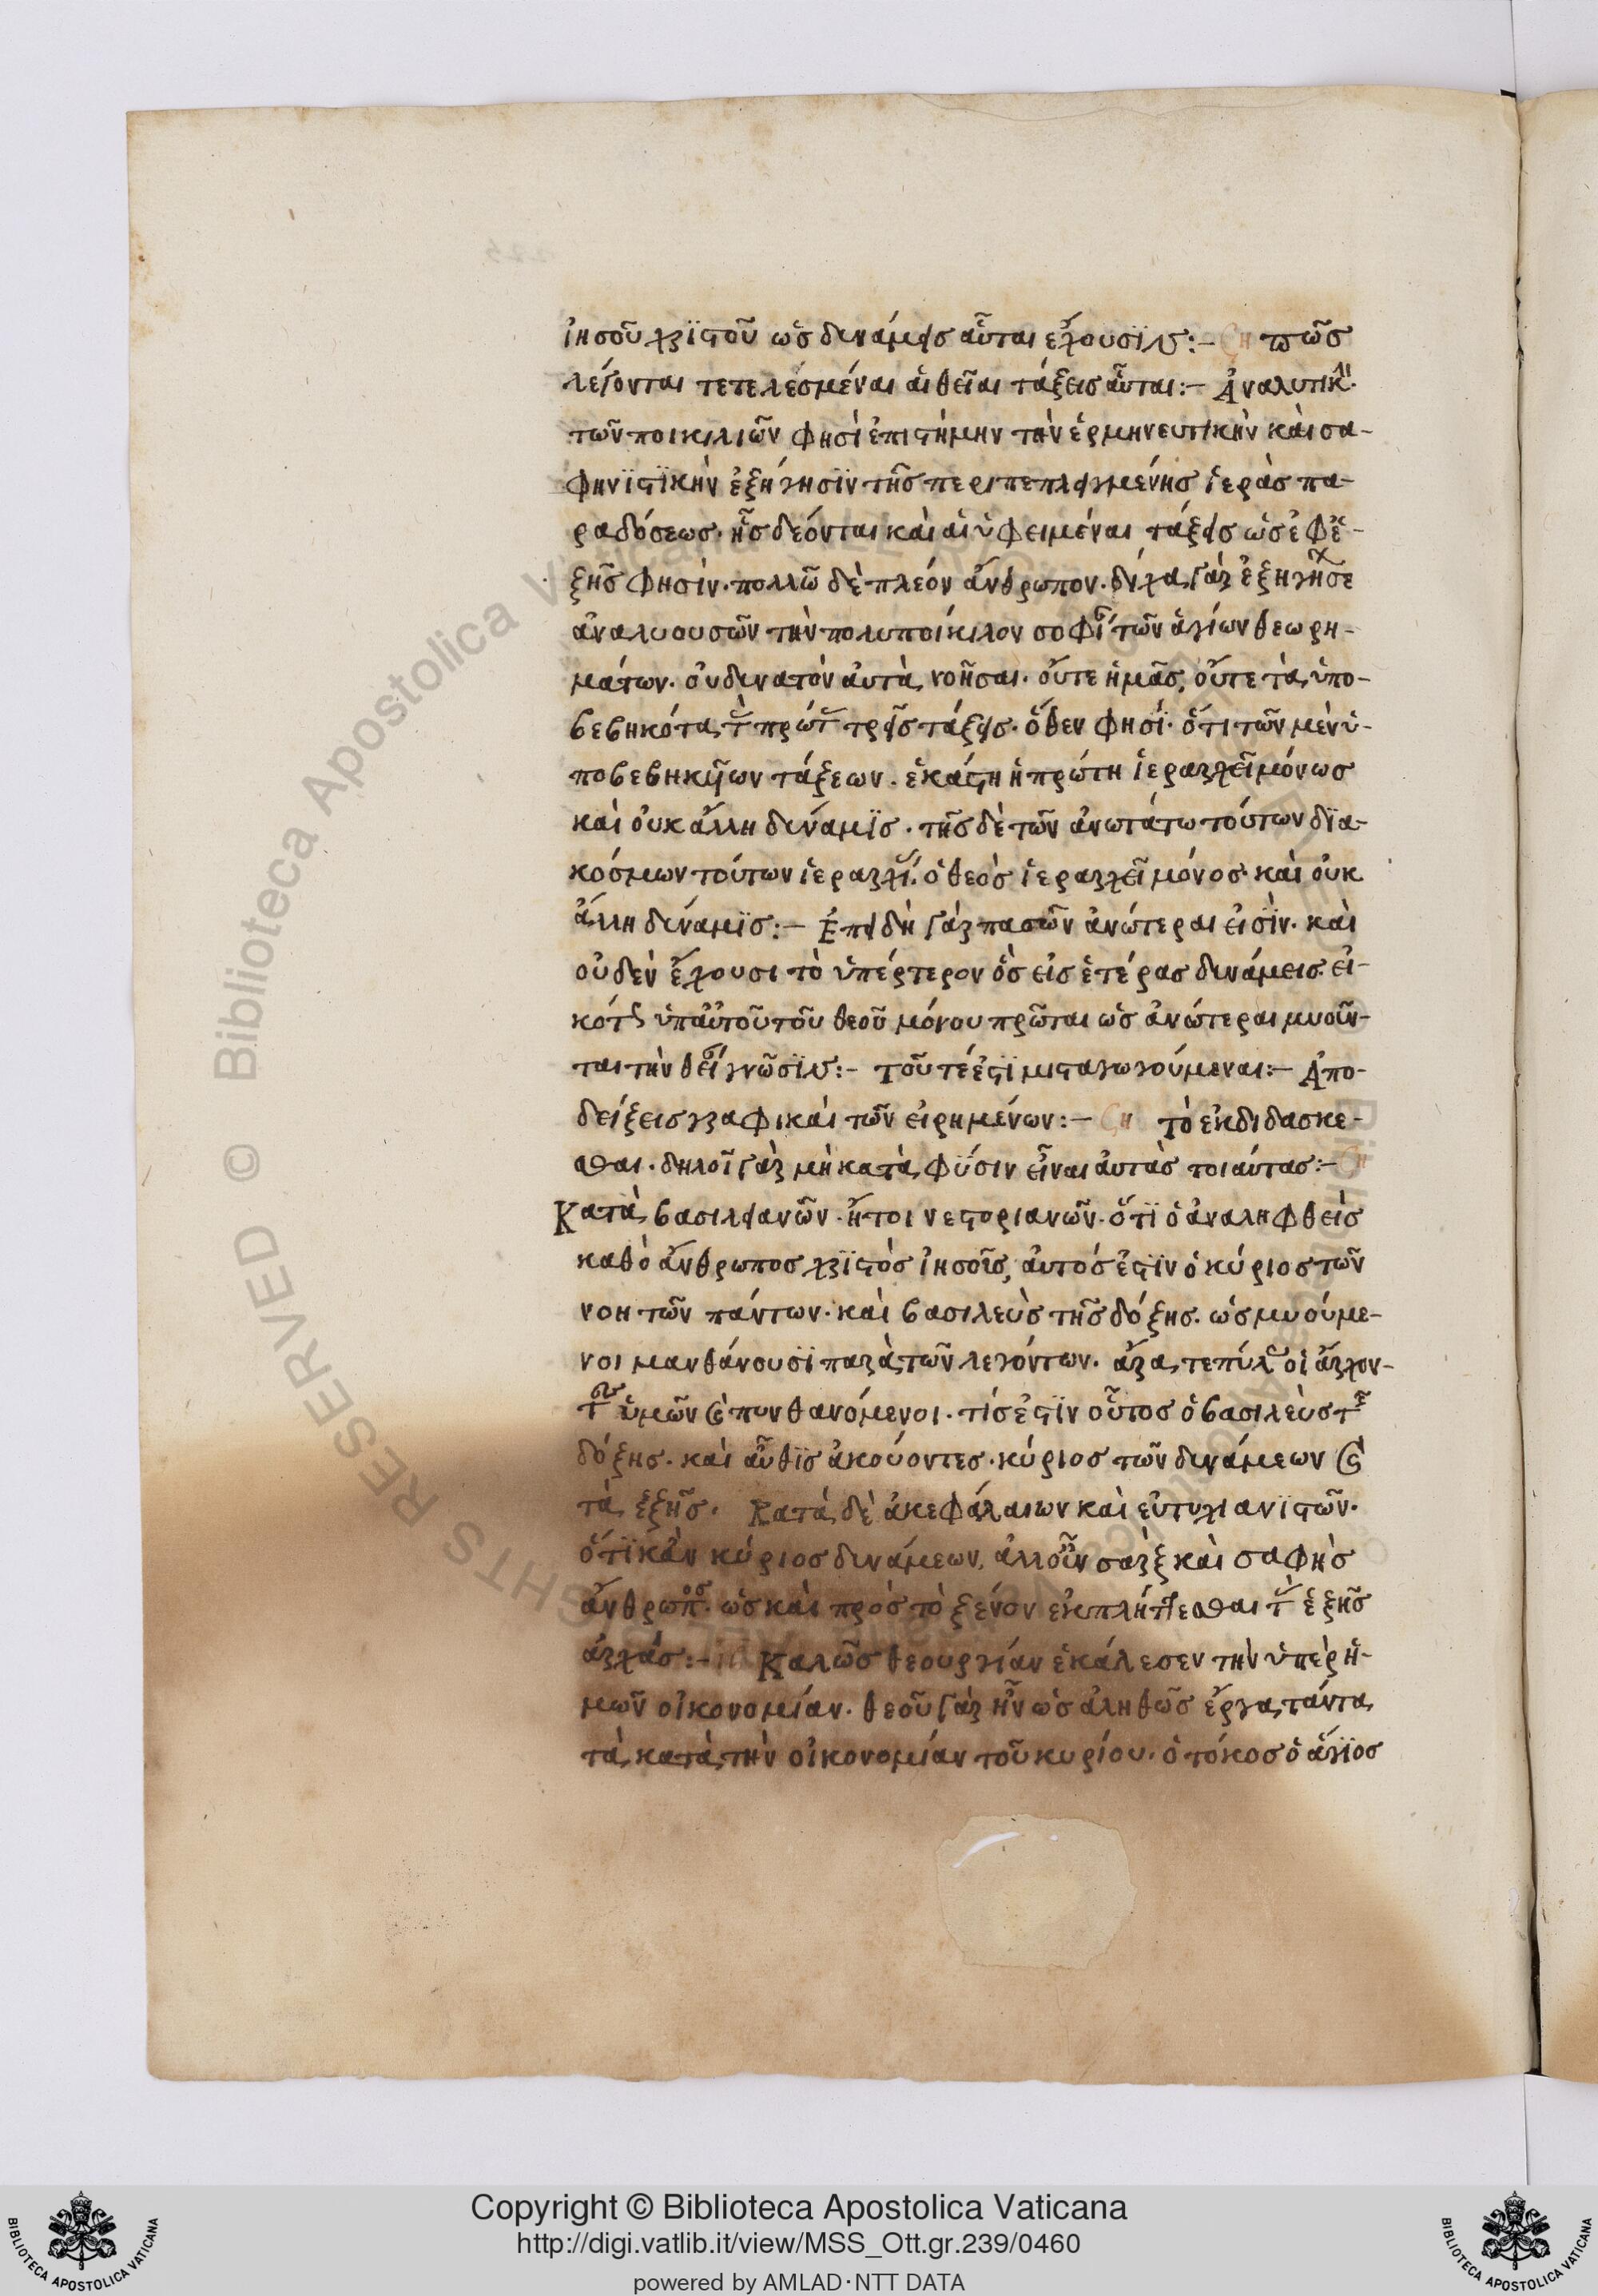 ἰησοῦ χριστοῦ ὡς δυνάμεις αὗται ἔχουσιν:– ση πῶς
λέγονται τετελεσμέναι αἱ θεῖαι τάξεις αὗται:– Ἀναλυτικὴ
τῶν ποικιλιῶν φησὶ ἐπιστήμην τὴν ἑρμηνευτικὴν καὶ σα-
φηνιστικὴν ἐξήγησιν τῆς περιπεπλεγμένης ἱερᾶς πα-
ραδόσεως. ἧς δέονται καὶ αἱ ὑφειμέναι τάξεις ὡς ἐφε-
ξῆς φησίν. πολλῶ δὲ πλέον ἄνθρωπον. δίχα γὰρ ἐξηγήσε
ἀναλυουσῶν τὴν πολυποίκιλον σοφίαν τῶν ἁγίων θεωρη-
μάτων. οὐ δυνατὸν αὐτὰ νοῆσαι. οὔτε ἡμᾶς, οὔτε τὰ ὑπο-
βεβηκότα τῆς πρώτης τρεῖς τάξεις. ὅθεν φησί. ὅτι τῶν μὲν ὑ-
ποβεβηκυιῶν τάξεων. ἑκάστη ἡ πρώτη ἱεραρχεῖ μόνως
καὶ οὐκ ἄλλη δύναμις. τῆς δὲ τῶν ἀνωτάτω τούτων δια-
κόσμων τούτων ἱεραρχίας. ὁ θεὸς ἱεραρχεῖ μόνος καὶ οὐκ
ἄλλη δύναμις:– Ἐπειδὴ γὰρ πασῶν ἀνώτεραι εἰσὶν. καὶ
οὐδὲν ἔχουσι τὸ ὑπέρτερον ὡς εἰς ἑτέρας δυνάμεις. εἰ-
κότως ὑπ αὐτοῦ τοῦ θεοῦ μόνου πρῶται ὡς ἀνώτεραι μυοῦν-
ται τὴν θείαν γνῶσιν:– τοῦτέ ἐστι μισταγωγούμεναι:– Ἀπο-
δείξεις γραφικαὶ τῶν εἰρημένων:– ση τὸ ἐκδιδάσκε-
σθαι. δηλοῖ γὰρ μὴ κατὰ φύσιν εἶναι αὐτὰς τοιαύτας:– ση
Κατὰ βασιλειανῶν. ἤτοι νεστοριανῶν. ὅτι ὁ ἀναληφθεὶς
καθὸ ἄνθρωπος χριστὸς ἰησοῦς, αὐτός ἐστιν ὁ κύριος τῶν
νοητῶν πάντων. καὶ βασιλεὺς τῆς δόξης. ὡς μυούμε-
νοι μανθάνουσι παρὰ τῶν λεγόντων. ἄρατε πύλας οἱ ἄρχον-
τες ὑμῶν καὶ πυνθανόμενοι. τίς ἐστιν οὗτος ὁ βασιλεὺς τῆς
δόξης. καὶ αὖθις ἀκούοντες. κύριος τῶν δυνάμεων καὶ
τὰ ἑξῆς. Κατὰ δὲ ἀκεφάλαιων καὶ εὐτυχιανιστῶν.
ὅτι κἂν κύριος δυνάμεων, ἀλλ οὖν σὰρξ καὶ σαφὴς
ἄνθρωπος. ὡς καὶ πρὸς τὸ ξένον ἐκπλήττεσθαι τὰς ἑξῆς
ἀρχάς:– Καλῶς θεουργίαν ἐκάλεσεν τὴν ὑπὲρ ἡ-
μῶν οἰκονομίαν. θεοῦ γὰρ ἦν ὡς ἀληθῶς ἔργα ταῦτα
τὰ κατὰ τὴν οἰκονομίαν τοῦ κυρίου. ὁ τόκος ὁ ἅγιος
Copyright © Biblioteca Apostolica Vaticana
http://digi.vatlib.it/view/MSS_Ott.gr.239/0460
powered by AMLAD·NTT DATA